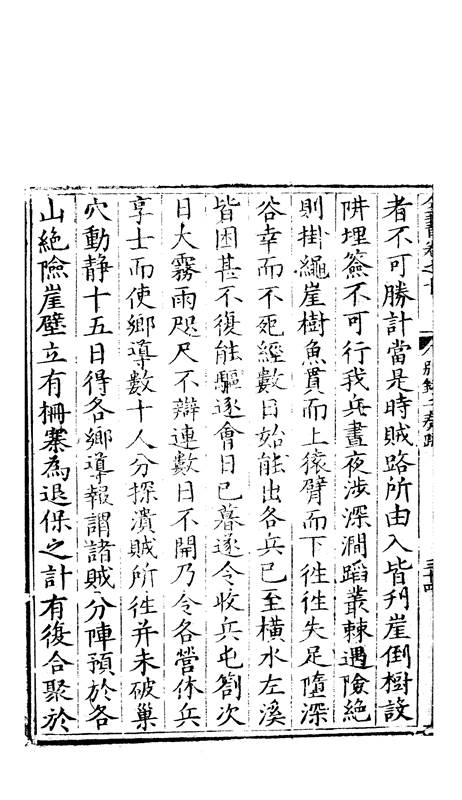 全書卷之十 別錄二 奏疏 三十四
者不可勝計當是時賊路所由入皆刋崖倒樹設
阱埋簽不可行我兵晝夜涉深澗蹈叢棘遇險絶
則掛繩崖樹魚貫而上猿臂而下徃徃失足墮深
谷幸而不死經數日始能出各兵已至橫水左溪
皆困甚不復能驅逐會日已暮遂令收兵屯劄次
日大霧雨咫尺不辯連數日不開乃令各營休兵
享士而使鄉導數十人分探潰賊所徃并未破巢
穴動靜十五日得各鄉導報謂諸賊分陣預於各
山絶險崖壁立有柵寨為退保之計有復合聚於